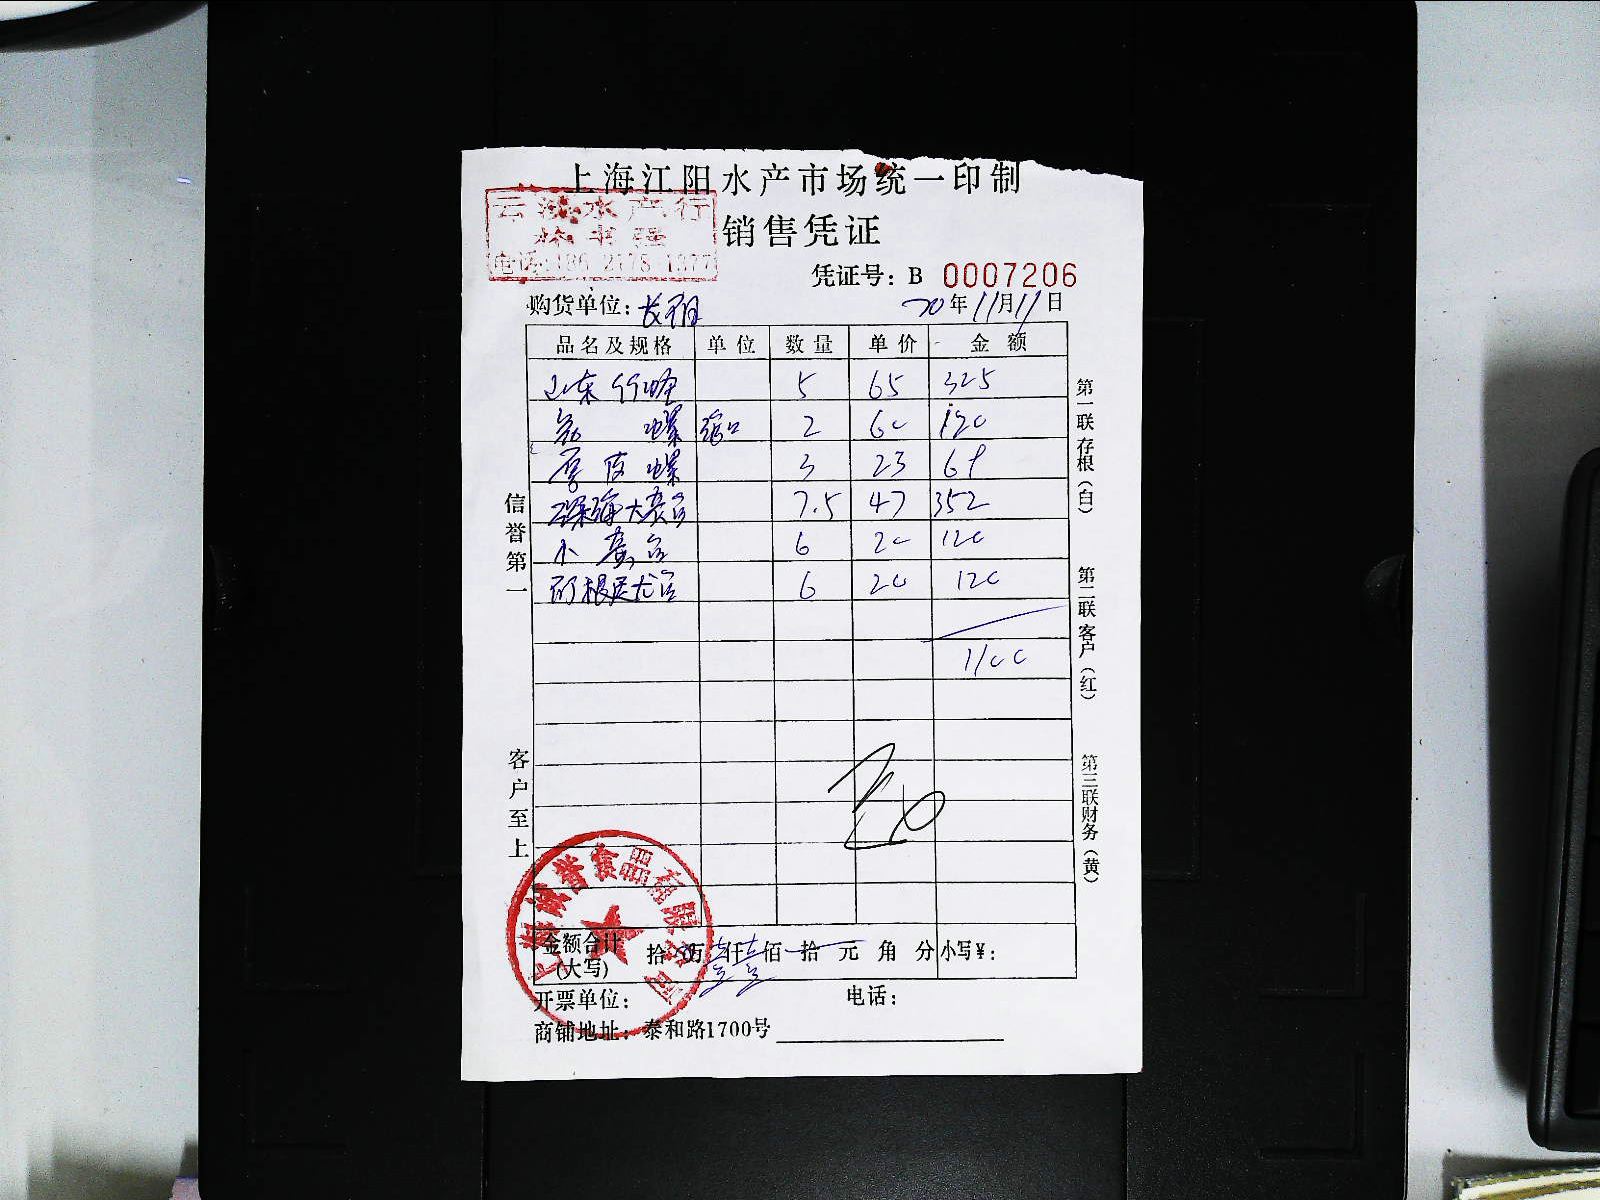 上海江阳水产市场统一印制
水产行
销售凭证
电话:
凭证号: B 0007206
购货单位:
20年11月11日
品名及规格 单位 数量 单价 金额
山东竹蛏 5 65 325
螺 2 60 120
厚皮螺 3 23 69
深海大 7.5 47 352
小 6 20 120
6 20 120
1100
信誉第一
客户至上
第一联存根(白)
第二联客户(红)
第三联财务(黄)
上海诚誉食品有限公司
金额合计(大写) 拾万壹仟壹佰拾元角分 小写¥:
开票单位: 电话:
商铺地址: 泰和路1700号